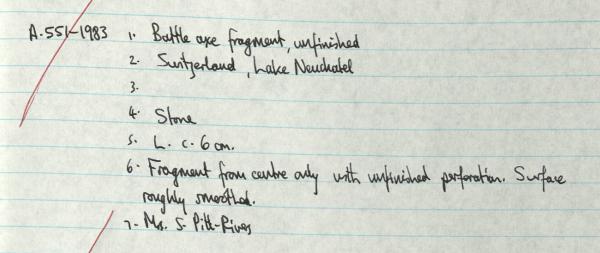 A.551-1983 1. Battle axe fragment, unfinished
2. Switzerland, Lake Neuchatel
3.
4. Stone
5. L. c. 6 cm.
6. Fragment from centre only with unfinished perforation. Surface
roughly smoothed.
7. Mrs. S. Pitt-Rivers